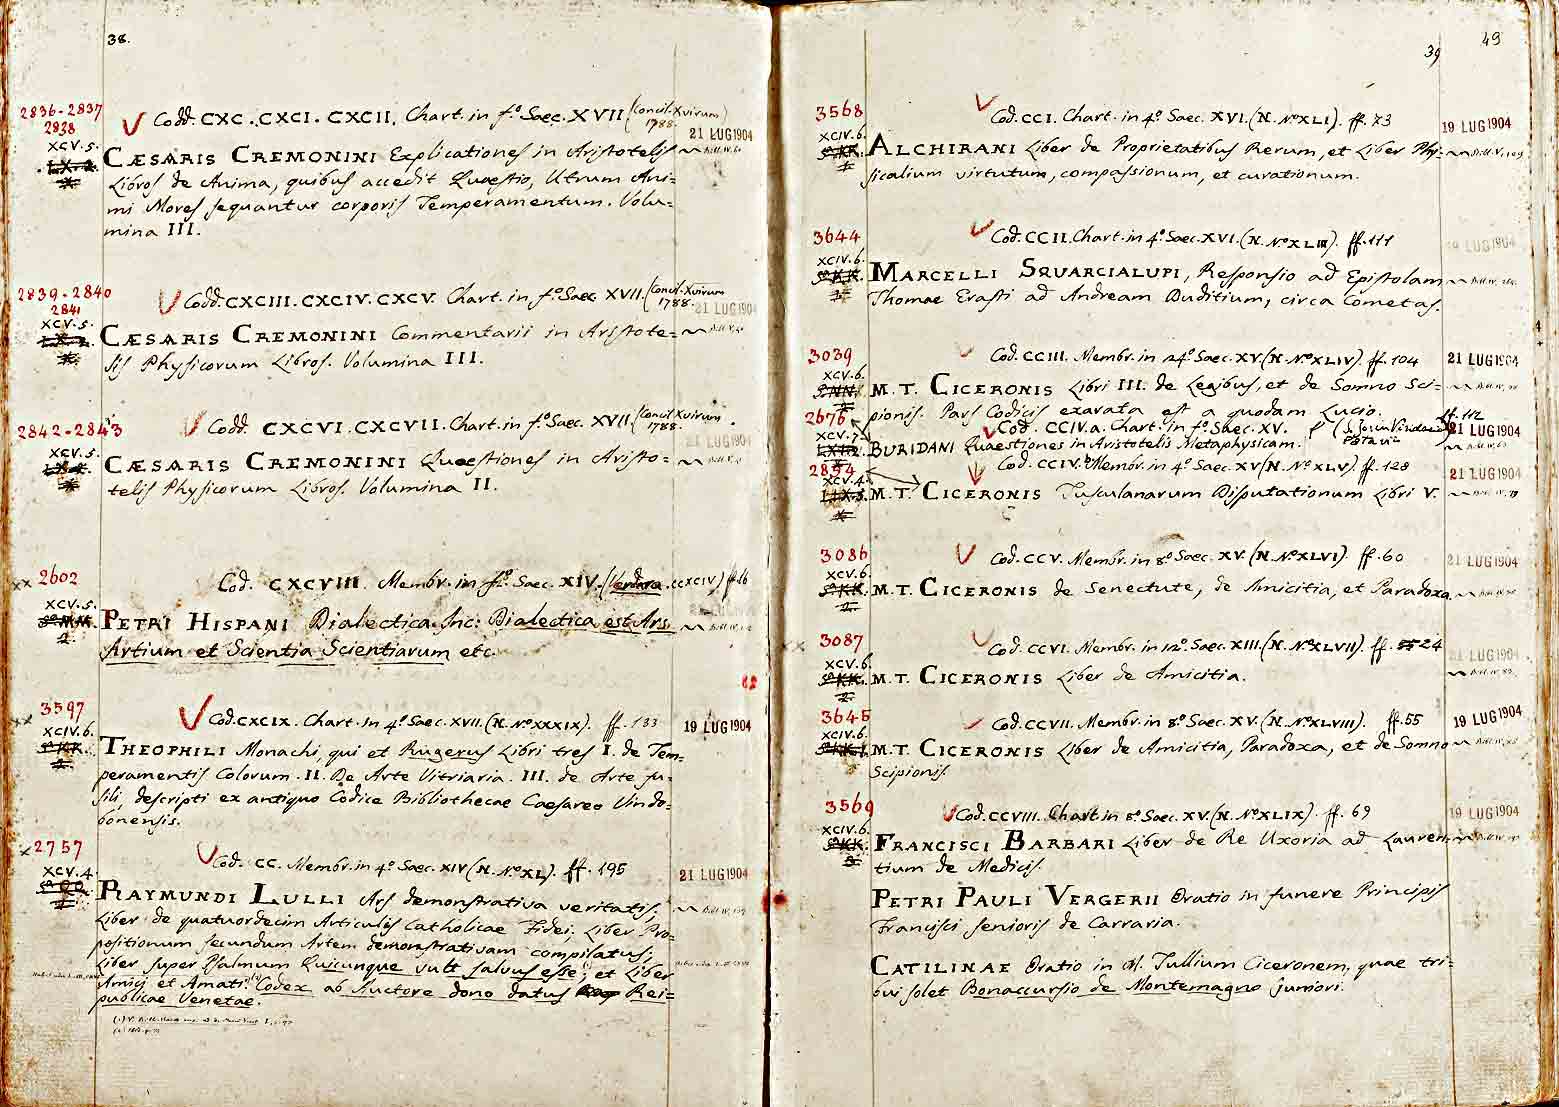 38.
2836-2837
2838
XCV. 5.
Codd. CXC. CXCI. CXCII. Chart. in f.º Saec. XVII (Concil. Xvirum
1788.
21 LUG 1904
CÆSARIS CREMONINI Explicationes in Aristotelis
Libros de Anima, quibus accedit Quaestio, Utrum Ani=
mi Mores sequantur corporis Temperamentum. Volu=
mina III.
2839-2840
2841
XCV. 5.
Codd. CXCIII. CXCIV. CXCV. Chart. in f.º Saec. XVII. (Concil. Xvirum
1788.
21 LUG 1904
CÆSARIS CREMONINI Commentarii in Aristote=
lis Physicorum Libros. Volumina III.
2842-2843
XCV. 5.
Codd. CXCVI. CXCVII. Chart. in f.º Saec. XVII. (Concil. Xvirum
1788.
21 LUG 1904
CÆSARIS CREMONINI Quaestiones in Aristo=
telis Physicorum Libros. Volumina II.
xx 2602
XCV. 5.
Cod. CXCVIII. Membr. in f.º Saec. XIV. (Verdara. CCXCIV) ff. 16
PETRI HISPANI Dialectica. Inc: Dialectica est Ars
Artium et Scientia Scientiarum etc.
xx 3597
XCIV. 6.
Cod. CXCIX. Chart. in 4.º Saec. XVII. (N. Nº XXXIX). ff. 133
19 LUG 1904
THEOPHILI Monachi, qui et Rugerus Libri tres I. de Tem=
peramentis Colorum. II. De Arte Vitriaria. III. de Arte fu=
sili, descripti ex antiquo Codice Bibliothecae Caesareo Vindo=
bonensis.
x 2757
XCV. 4.
Cod. CC. Membr. in 4.º Saec. XIV (N. Nº XL). ff. 195
21 LUG 1904
RAYMUNDI LULLI Ars demonstrativa veritatis;
Liber de quatuordecim Articulis Catholicae Fidei; Liber Pro=
positionum secundum Artem demonstrativam compilatus;
Liber super Psalmum Quicunque vult salvus esse; et Liber
Amici et Amati. Codex ab Auctore dono datus Rei=
publicae Venetae.
39
49
3568
XCIV. 6.
Cod. CCI. Chart. in 4.º Saec. XVI. (N. Nº XLI). ff. 73
19 LUG 1904
ALCHIRANI Liber de Proprietatibus Rerum, et Liber Phy=
sicalium virtutum, compassionum, et curationum.
3644
XCIV. 6.
Cod. CCII. Chart. in 4.º Saec. XVI. (N. Nº XLIII). ff. 111
19 LUG 1904
MARCELLI SQUARCIALUPI, Responsio ad Epistolam
Thomae Erasti ad Andream Duditium, circa Cometas.
3039
XCV. 6.
Cod. CCIII. Membr. in 24.º Saec. XV. (N. Nº XLIV). ff. 104
21 LUG 1904
M. T. CICERONIS Libri III. de Legibus, et de Somno Sci=
pionis. Pars Codicis exarata est a quodam Lucio.
2676
XCV. 7.
Cod. CCIV.a. Chart. in f.º Saec. XV.
ff. 112
21 LUG 1904
BURIDANI Quaestiones in Aristotelis Metaphysicam.
2854
XCV. 4.
Cod. CCIV. Membr. in 4.º Saec. XV (N. Nº XLV). ff. 128
21 LUG 1904
M. T. CICERONIS Tusculanarum Disputationum Libri V.
3086
XCV. 6.
Cod. CCV. Membr. in 8.º Saec. XV. (N. Nº XLVI). ff. 60
21 LUG 1904
M. T. CICERONIS de Senectute, de Amicitia, et Paradoxa
3087
XCV. 6.
Cod. CCVI. Membr. in 12.º Saec. XIII. (N. Nº XLVII). ff. 24
21 LUG 1904
M. T. CICERONIS Liber de Amicitia.
3645
XCIV. 6.
Cod. CCVII. Membr. in 8.º Saec. XV. (N. Nº XLVIII). ff. 55
19 LUG 1904
M. T. CICERONIS Liber de Amicitia, Paradoxa, et de Somno
Scipionis.
3569
XCIV. 6.
Cod. CCVIII. Chart. in 8.º Saec. XV. (N. Nº XLIX). ff. 69
19 LUG 1904
FRANCISCI BARBARI Liber de Re Uxoria ad Lauren=
tium de Medicis.
PETRI PAULI VERGERII Oratio in funere Principis
Francisci senioris de Carraria.
CATILINAE Oratio in M. Tullium Ciceronem, quae tri=
bui solet Bonaccursio de Montemagno juniori.